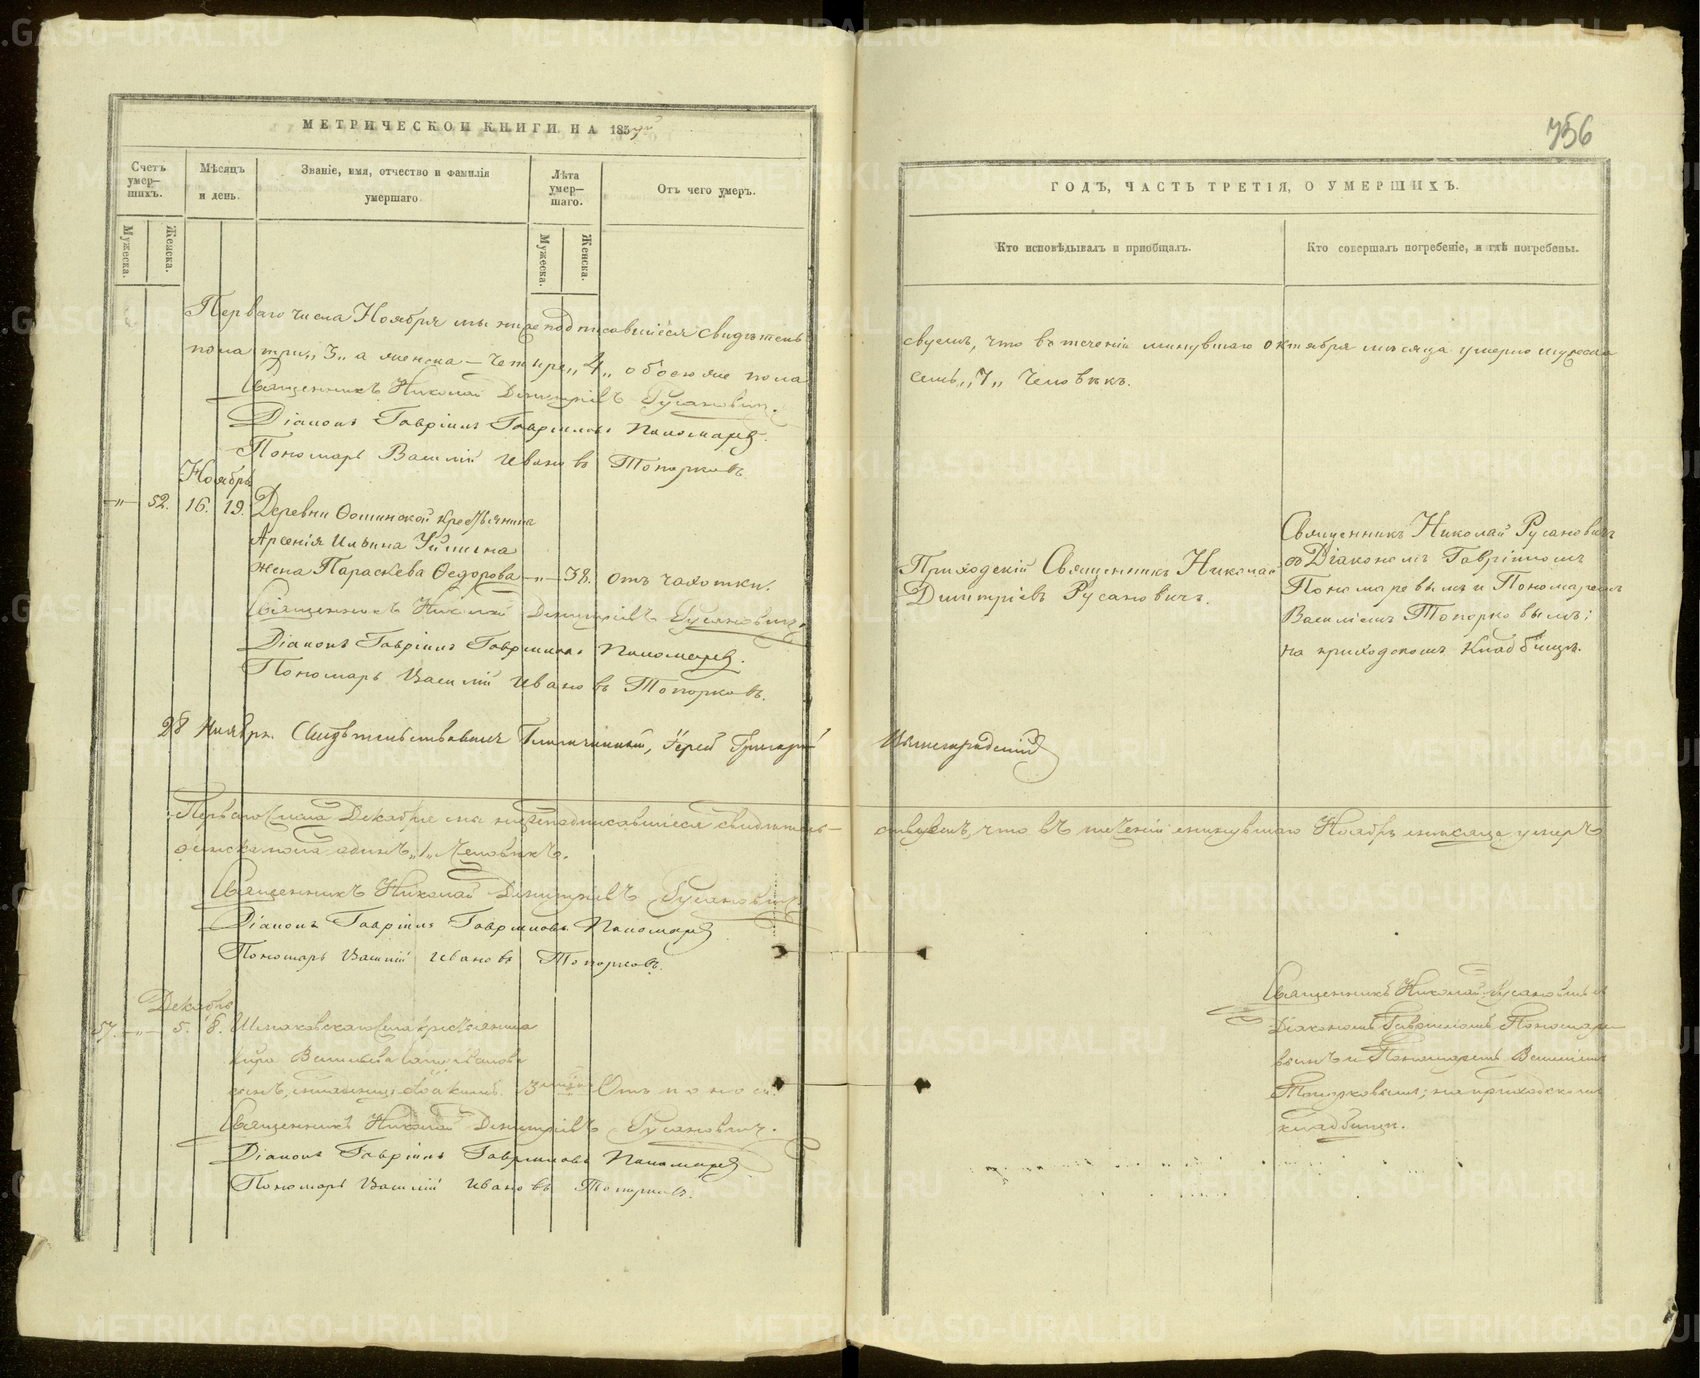 МЕТРИЧЕСКОЙ КНИГИ НА 185
Счетъ умер-шихъ.
Мѣсяцъ и день.
Званіе, имя, отчество и фамилія умершаго
Лѣта умер-шаго.
Отъ чего умеръ.
Мужеска.
Женска.
Мужеска.
Женска.
Перваго числа Ноября мы нижеподписавшіеся свидѣтель
пола три „3„ а женска – четыре „4„ обоего пола
Священникъ Николай Димитріевъ Русановичъ.
Діаконъ Гавріилъ Гавриловъ Пономаревъ.
Пономарь Василій Ивановъ Топорковъ.
Ноябрь
–„– 52. 16. 19. Деревни Фоминской крестьянина
Арсенія Ильина
жена Параскева Ѳедорова –„– 38. отъ чахотки.
Священникъ Николай Димитріевъ Русановичъ.
Діаконъ Гавріилъ Гавриловъ Пономаревъ.
Пономарь Василій Ивановъ Топорковъ.
28 Ноября. Свидѣтельствовалъ Благочинный, Іерей Григорій
Перваго числа Декабря мы нижеподписавшіеся свидѣтель-
женска пола одинъ „1„ человѣкъ.
Священникъ Николай Димитріевъ Русановичъ
Діаконъ Гавріилъ Гавриловъ Пономаревъ
Пономарь Василій Ивановъ Топорковъ.
Декабрь
57. –„– 5. 8. села крестьянина
Кира Васильева
сынъ, младенецъ 3 Отъ поноса.
Священникъ Николай Димитріевъ Русановичъ.
Діаконъ Гавріилъ Гавриловъ Пономаревъ
Пономарь Василій Ивановъ Топорковъ.
756
ГОДЪ, ЧАСТЬ ТРЕТІЯ, О УМЕРШИХЪ.
Кто исповѣдывалъ и пріобщалъ.
Кто совершалъ погребеніе, и гдѣ погребены.
свуемъ, что въ теченіи минувшаго октября мѣсяца умерло мужеска
семь „7„ человѣкъ.
Приходскій Священникъ Николай
Димитріевъ Русановичъ.
Священникъ Николай Русановичъ
съ Діакономъ Гавріиломъ
Пономаревымъ и Пономаремъ
Василіемъ Топорковымъ;
на приходскомъ кладбищѣ.
ствуемъ, что въ теченіи минувшаго Ноября мѣсяца умеръ
Священникъ Николай Русановичъ съ
Діакономъ Гавріиломъ Пономаре
вымъ и Пономаремъ Василіемъ
Топорковымъ; на приходскомъ
кладбищѣ.
METRIKI.GASO-URAL.RU